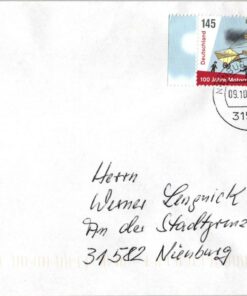 145
Deutschland
100 Jahre Motor
09.10
315
Herrn
Werner Lengnick
An der Stadtgrenz
31582 Nienburg